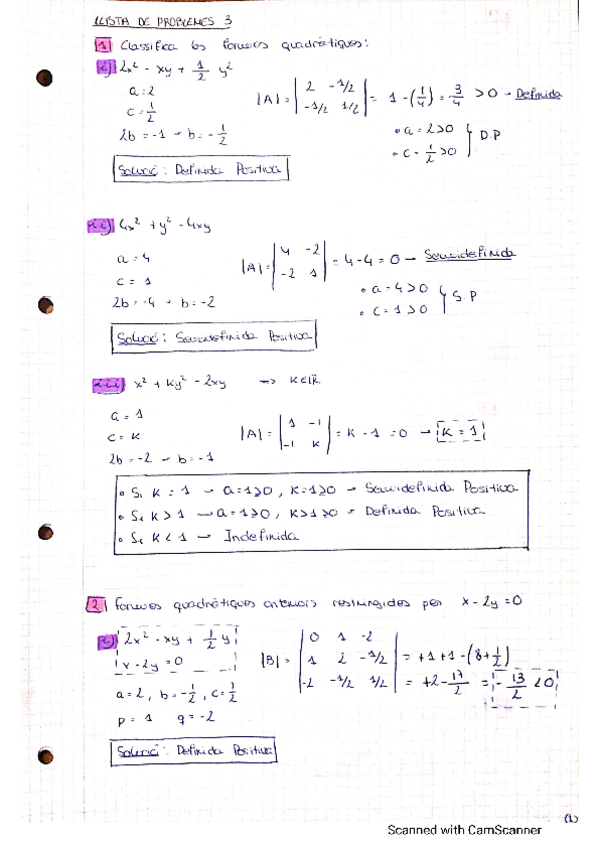 LLISTA DE PROBLEMES 3
1 Classifica les formes quadràtiques:
i) 2x² - xy + 1/2 y²
a = 2
c = 1/2
2b = -1 → b = -1/2
|A| = | 2 -1/2 ; -1/2 1/2 | = 1 - (1/4) = 3/4 > 0 → Definida
• a = 2 > 0
• c = 1/2 > 0 } D.P
Solució: Definida Positiva
ii) 4x² + y² - 4xy
a = 4
c = 1
2b = -4 → b = -2
|A| = | 4 -2 ; -2 1 | = 4 - 4 = 0 → Semidefinida
• a = 4 > 0
• c = 1 > 0 } S.P
Solució: Semidefinida Positiva
iii) x² + Ky² - 2xy ⇒ K∈ℝ
a = 1
c = K
2b = -2 → b = -1
|A| = | 1 -1 ; -1 K | = K - 1 = 0 → K = 1
• Si K = 1 → a=1>0, K=1>0 → Semidefinida Positiva
• Si K > 1 → a=1>0, K>1>0 → Definida Positiva
• Si K < 1 → Indefinida
2 Formes quadràtiques anteriors restringides per x - 2y = 0
i) 2x² - xy + 1/2 y
x - 2y = 0
a = 2, b = -1/2, c = 1/2
p = 1 q = -2
|B| = | 0 1 -2 ; 1 2 -1/2 ; -2 -1/2 1/2 | = +1 + 1 - (8 + 1/2)
= +2 - 17/2 = - 13/2 < 0
Solució: Definida Positiva
(1)
Scanned with CamScanner